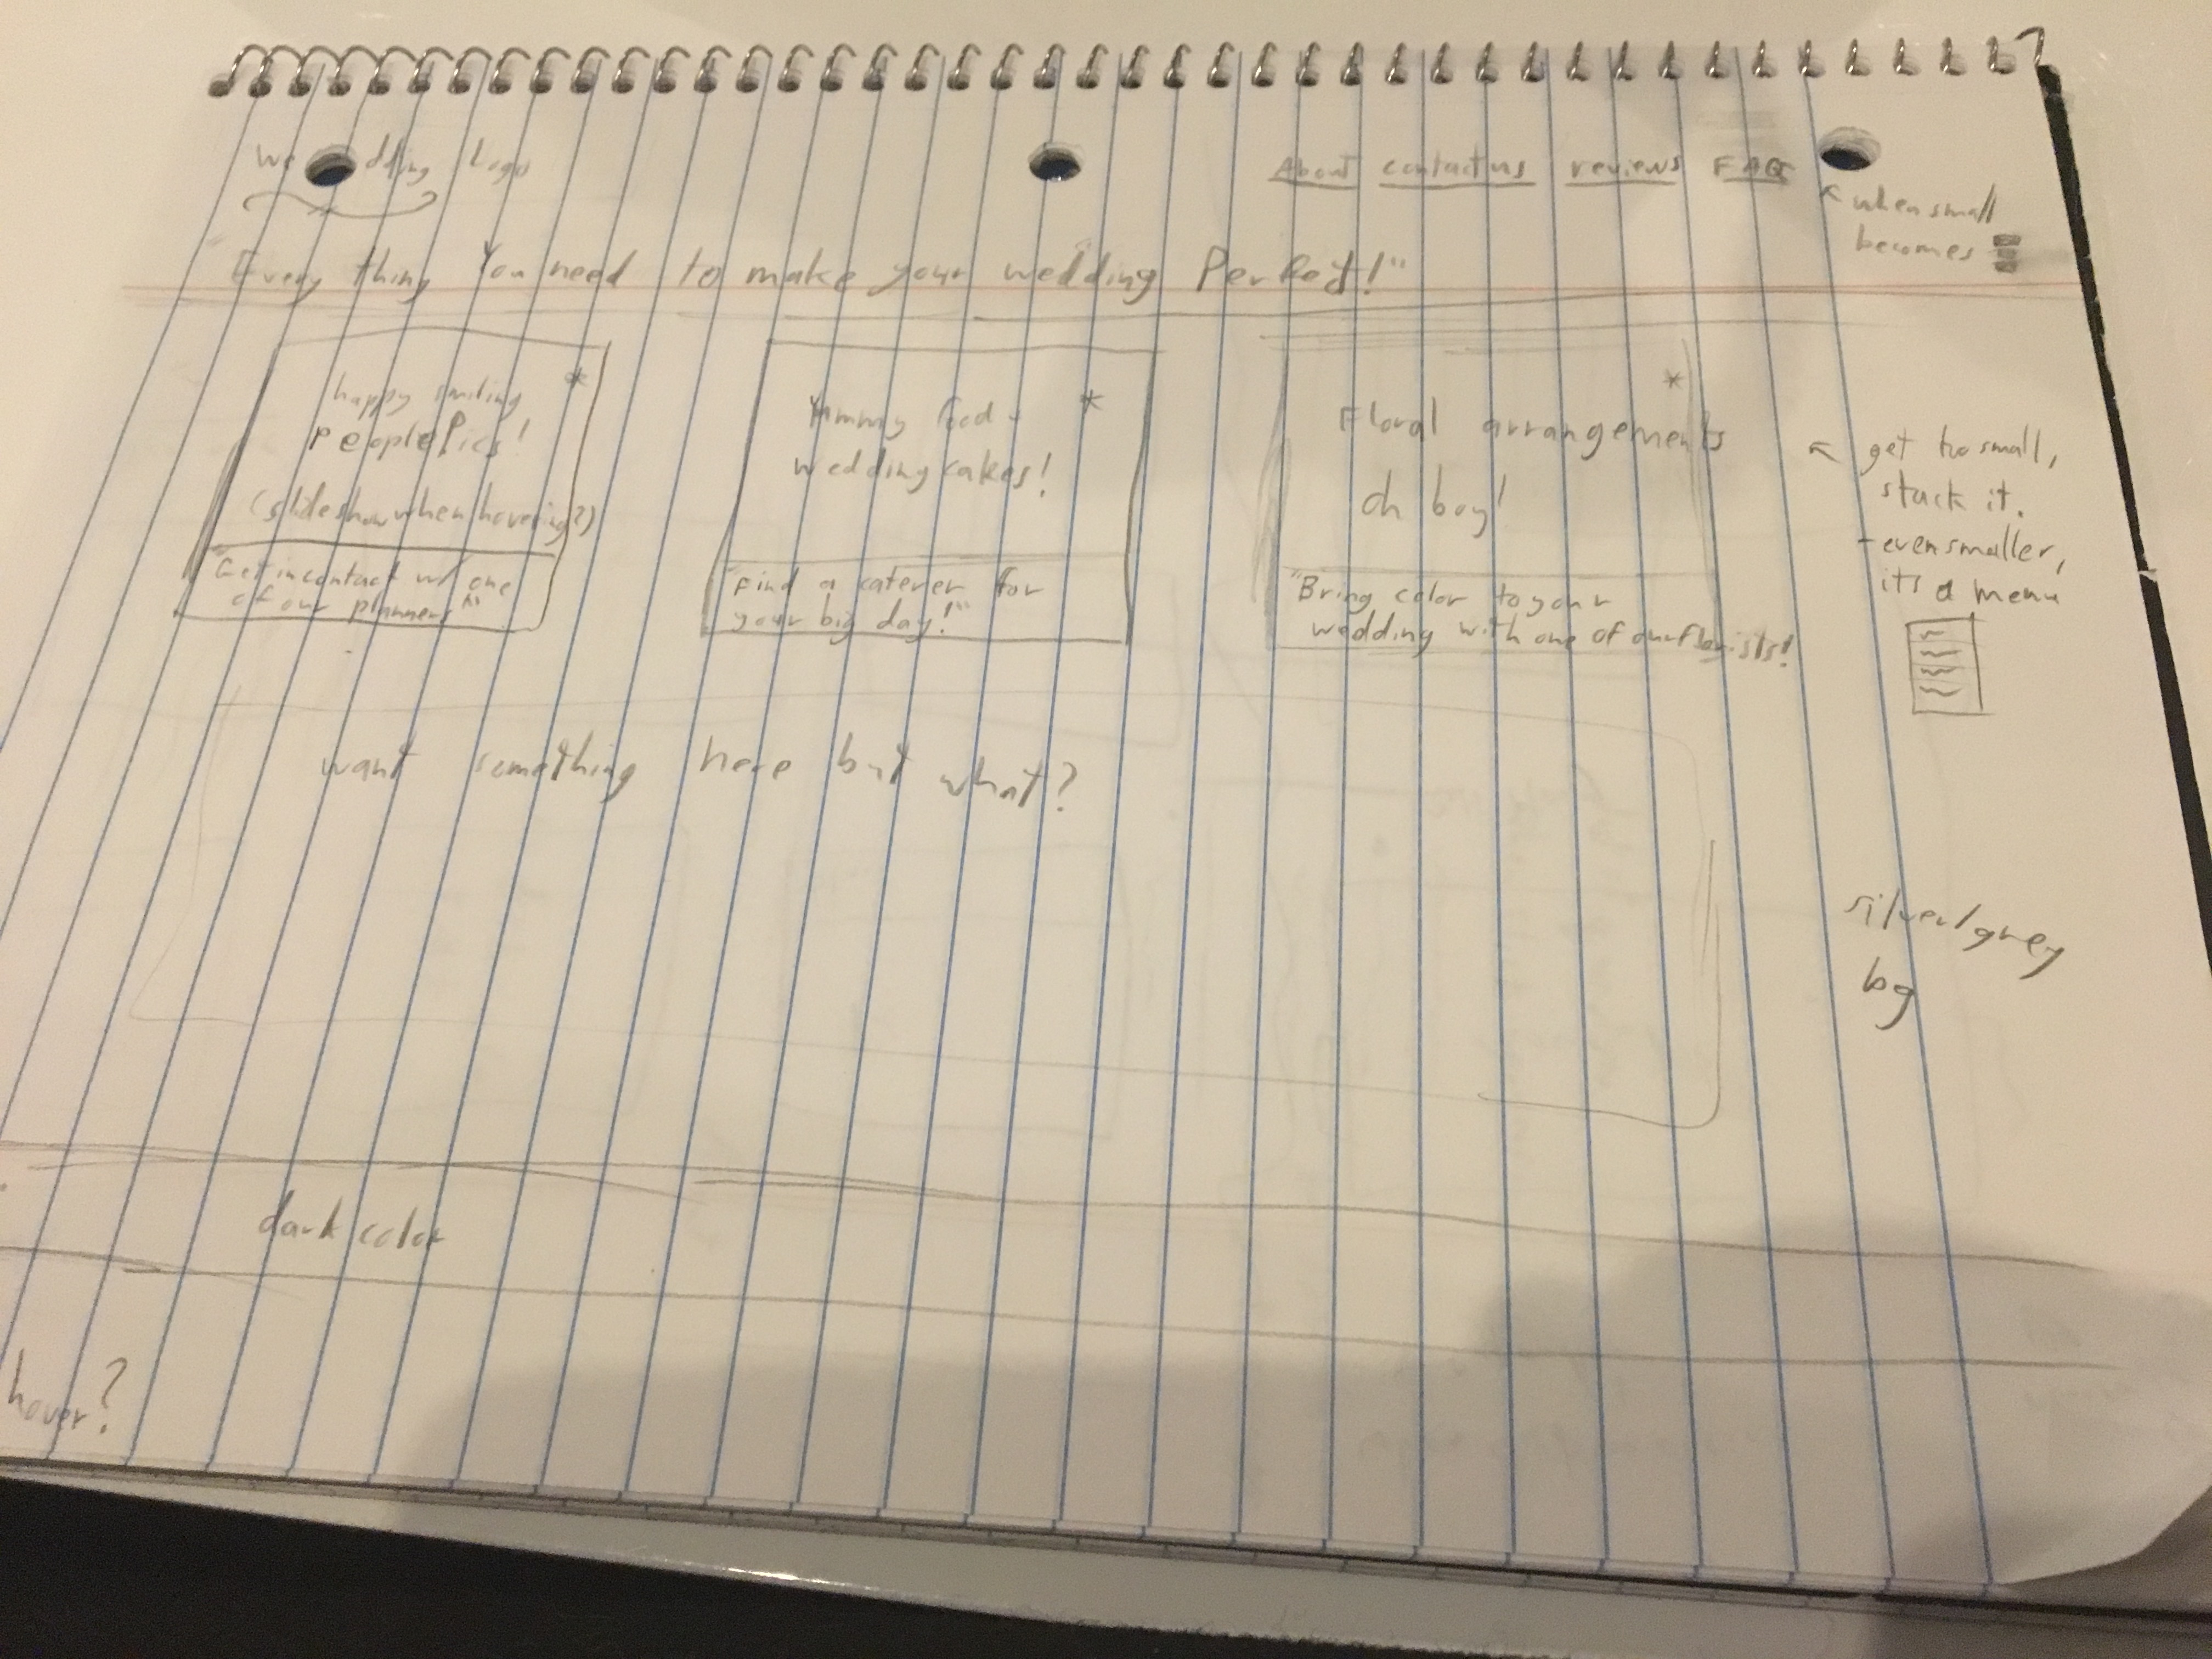 Wedding Logo
About contact us reviews FAQ
when small
becomes
"Every thing You need to make your wedding Perfect!"
happy smiling *
people Pics!
(slideshow when hovering?)
"Get in contact w/ one
of our planners"
Yummy food - *
wedding cakes!
"Find a caterer for
your big day!"
*
Floral arrangements
oh boy!
"Bring color to your
wedding with one of our florists!
get too small,
stack it.
- even smaller,
its a menu
want something here but what?
silver/grey
bg
dark color
hover?